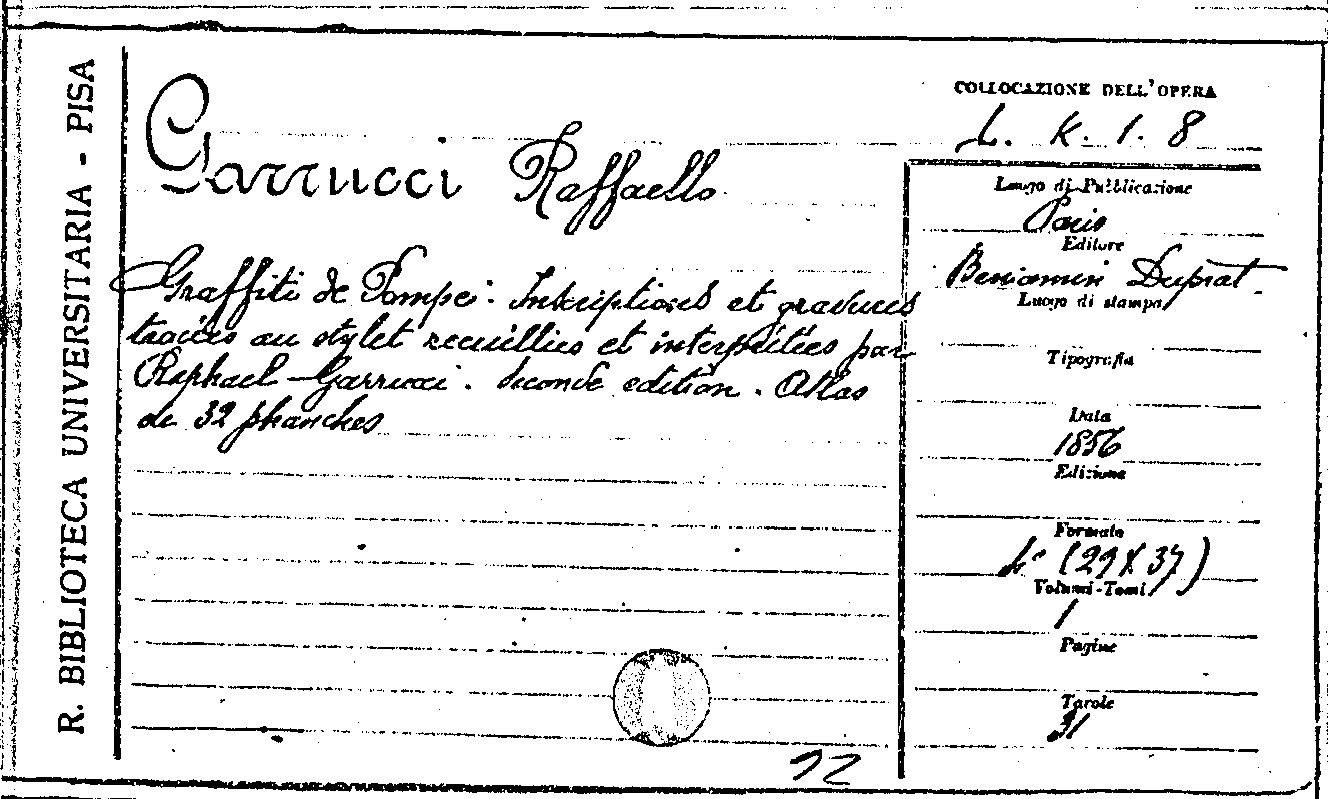 R. BIBLIOTECA UNIVERSITARIA - PISA
Garrucci Raffaello
Graffiti de Pompei. Inscriptions et gravures
tracées au stylet recueillies et interprétées par
Raphael Garrucci. Seconde edition. Atlas
de 32 planches
12
COLLOCAZIONE DELL'OPERA
L. K. 1. 8
Luogo di Pubblicazione
Paris
Editore
Beniamin Duprat.
Luogo di stampa
Tipografia
Data
1856
Edizione
Formato
4° (29 X 37)
Volumi-Tomi
1
Pagine
Tavole
31